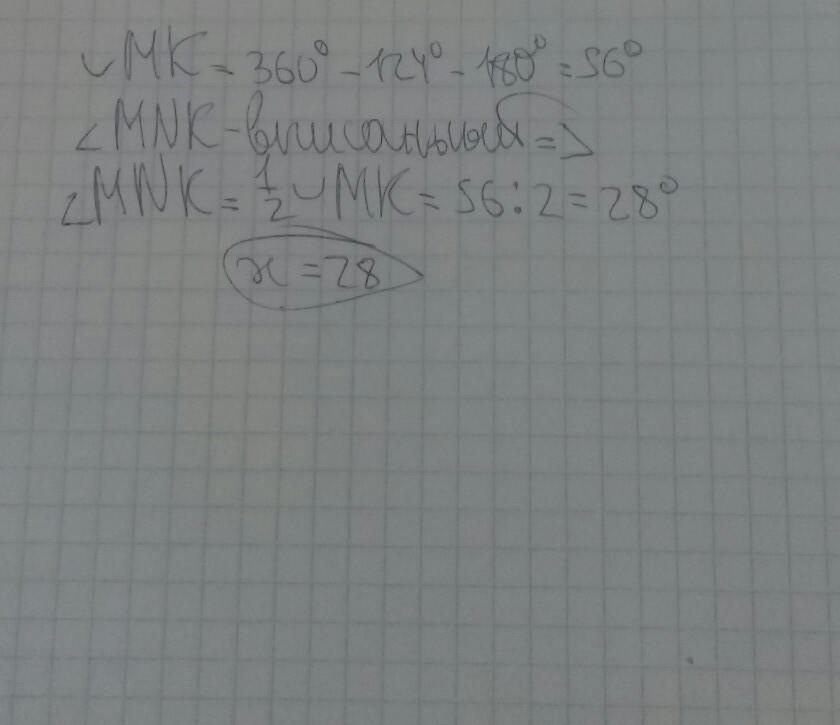 ◡MK = 360° - 124° - 180° = 56°
∠MNK - вписанный =>
∠MNK = 1/2 ◡MK = 56 : 2 = 28°
x = 28